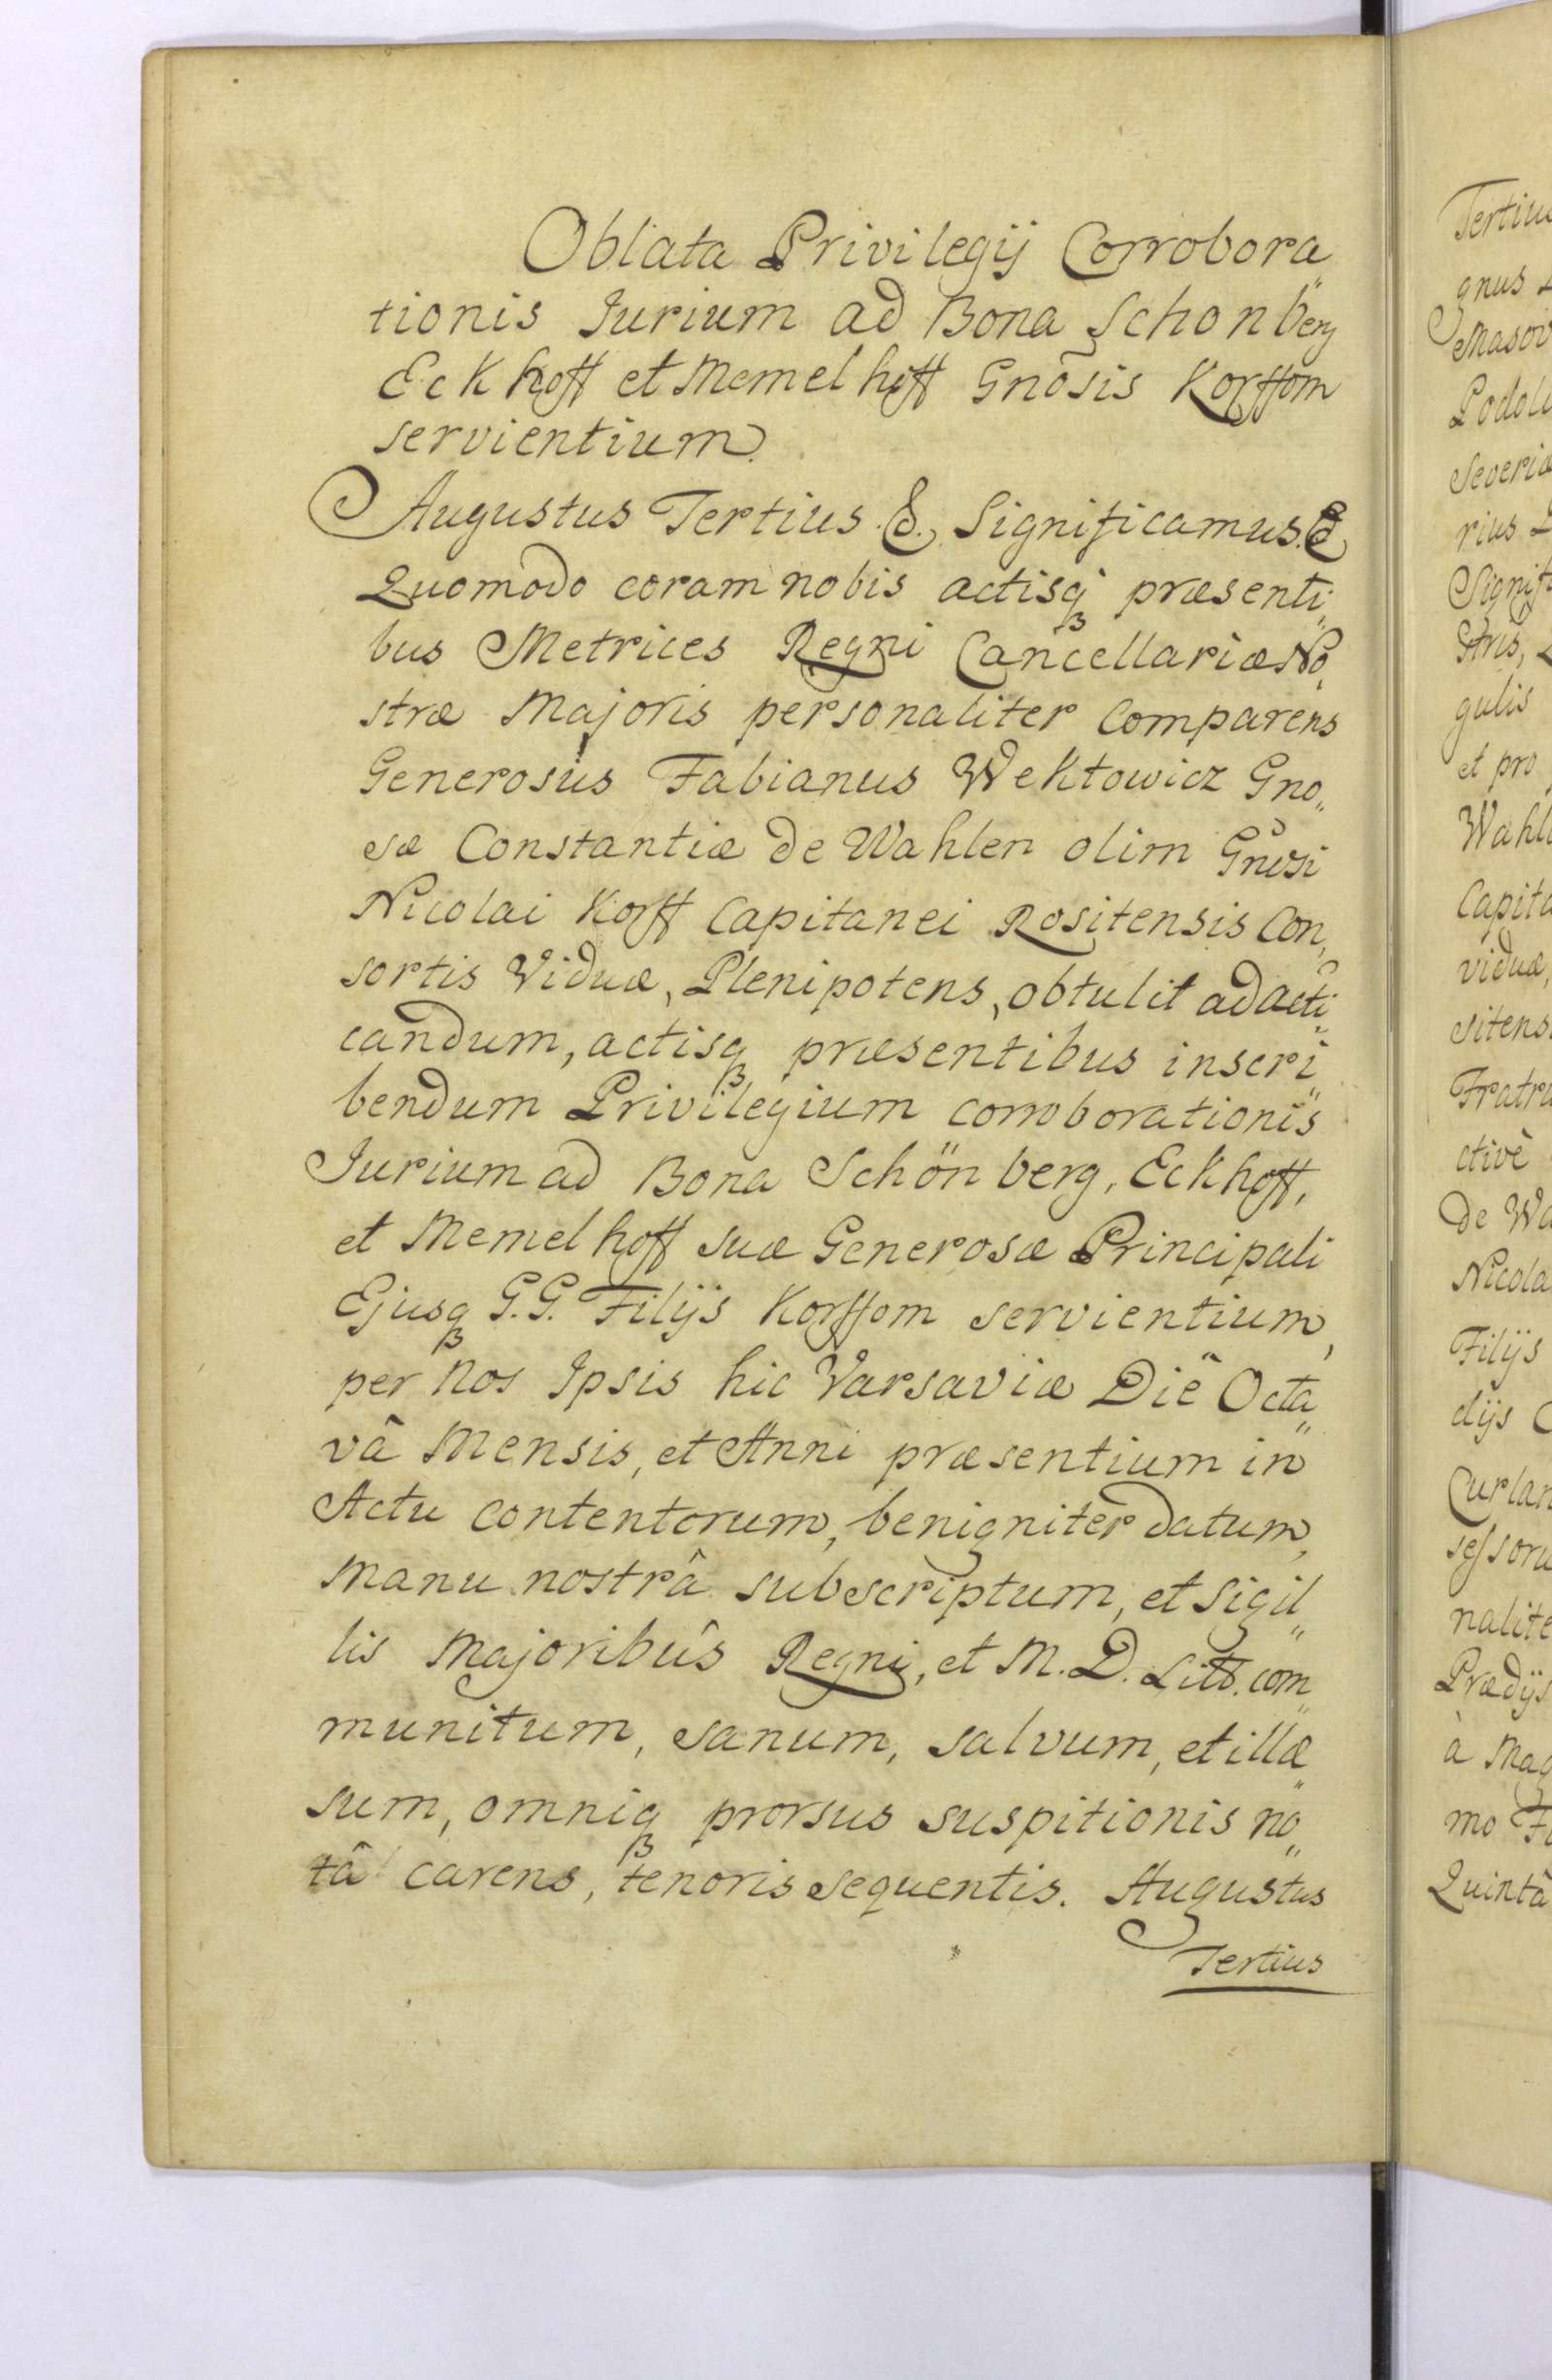 Oblata Privilegij Corrobora„
tionis Jurium ad Bona Schonberg
Eckhoff et Memelhoff Gnõsis Korffom
servientium.
Augustus Tertius &. Significamus. &
Quomodo coram nobis actisq́ præsenti„
bus Metrices Regni Cancellariæ No„
stræ Majoris personaliter comparens
Generosus Fabianus Wektowicz Gno„
sæ Constantiæ de Wahlen olim Gnosi
Nicolai Korff Capitanei Rositensis Con„
sortis Viduæ, Plenipotens, obtulit ad acti„
candum, actisq præsentibus inscri„
bendum Privilegium corroborationis
Jurium ad Bona Schönberg, Eckhoff,
et Memelhoff suæ Generosæ Principali
Ejusq G.G. Filijs Korffom servientium,
per Nos Ipsis hic Varsaviæ Diê Octa„
vâ Mensis, et Anni præsentium in
Actu contentorum, benigniter datum,
Manu nostrâ subscriptum, et Sigil„
lis Majoribûs Regni, et M. D. Litt. com„
munitum, sanum, salvum, et illæ„
sum, omniq prorsus suspitionis no„
tâ carens, tenoris sequentis. Augustus
Tertius
Tertiu
gnus
Masov
Podoli
Severiæ
rius
Signif
stris,
gulis
et pro
Wahl
Capita
viduæ,
sitens.
Fratru
ctivè
de Wa
Nicola
Filijs
dijs
Curlan
sessoru
nalite
Prædijs
à Mag
mo Fo
Quintâ